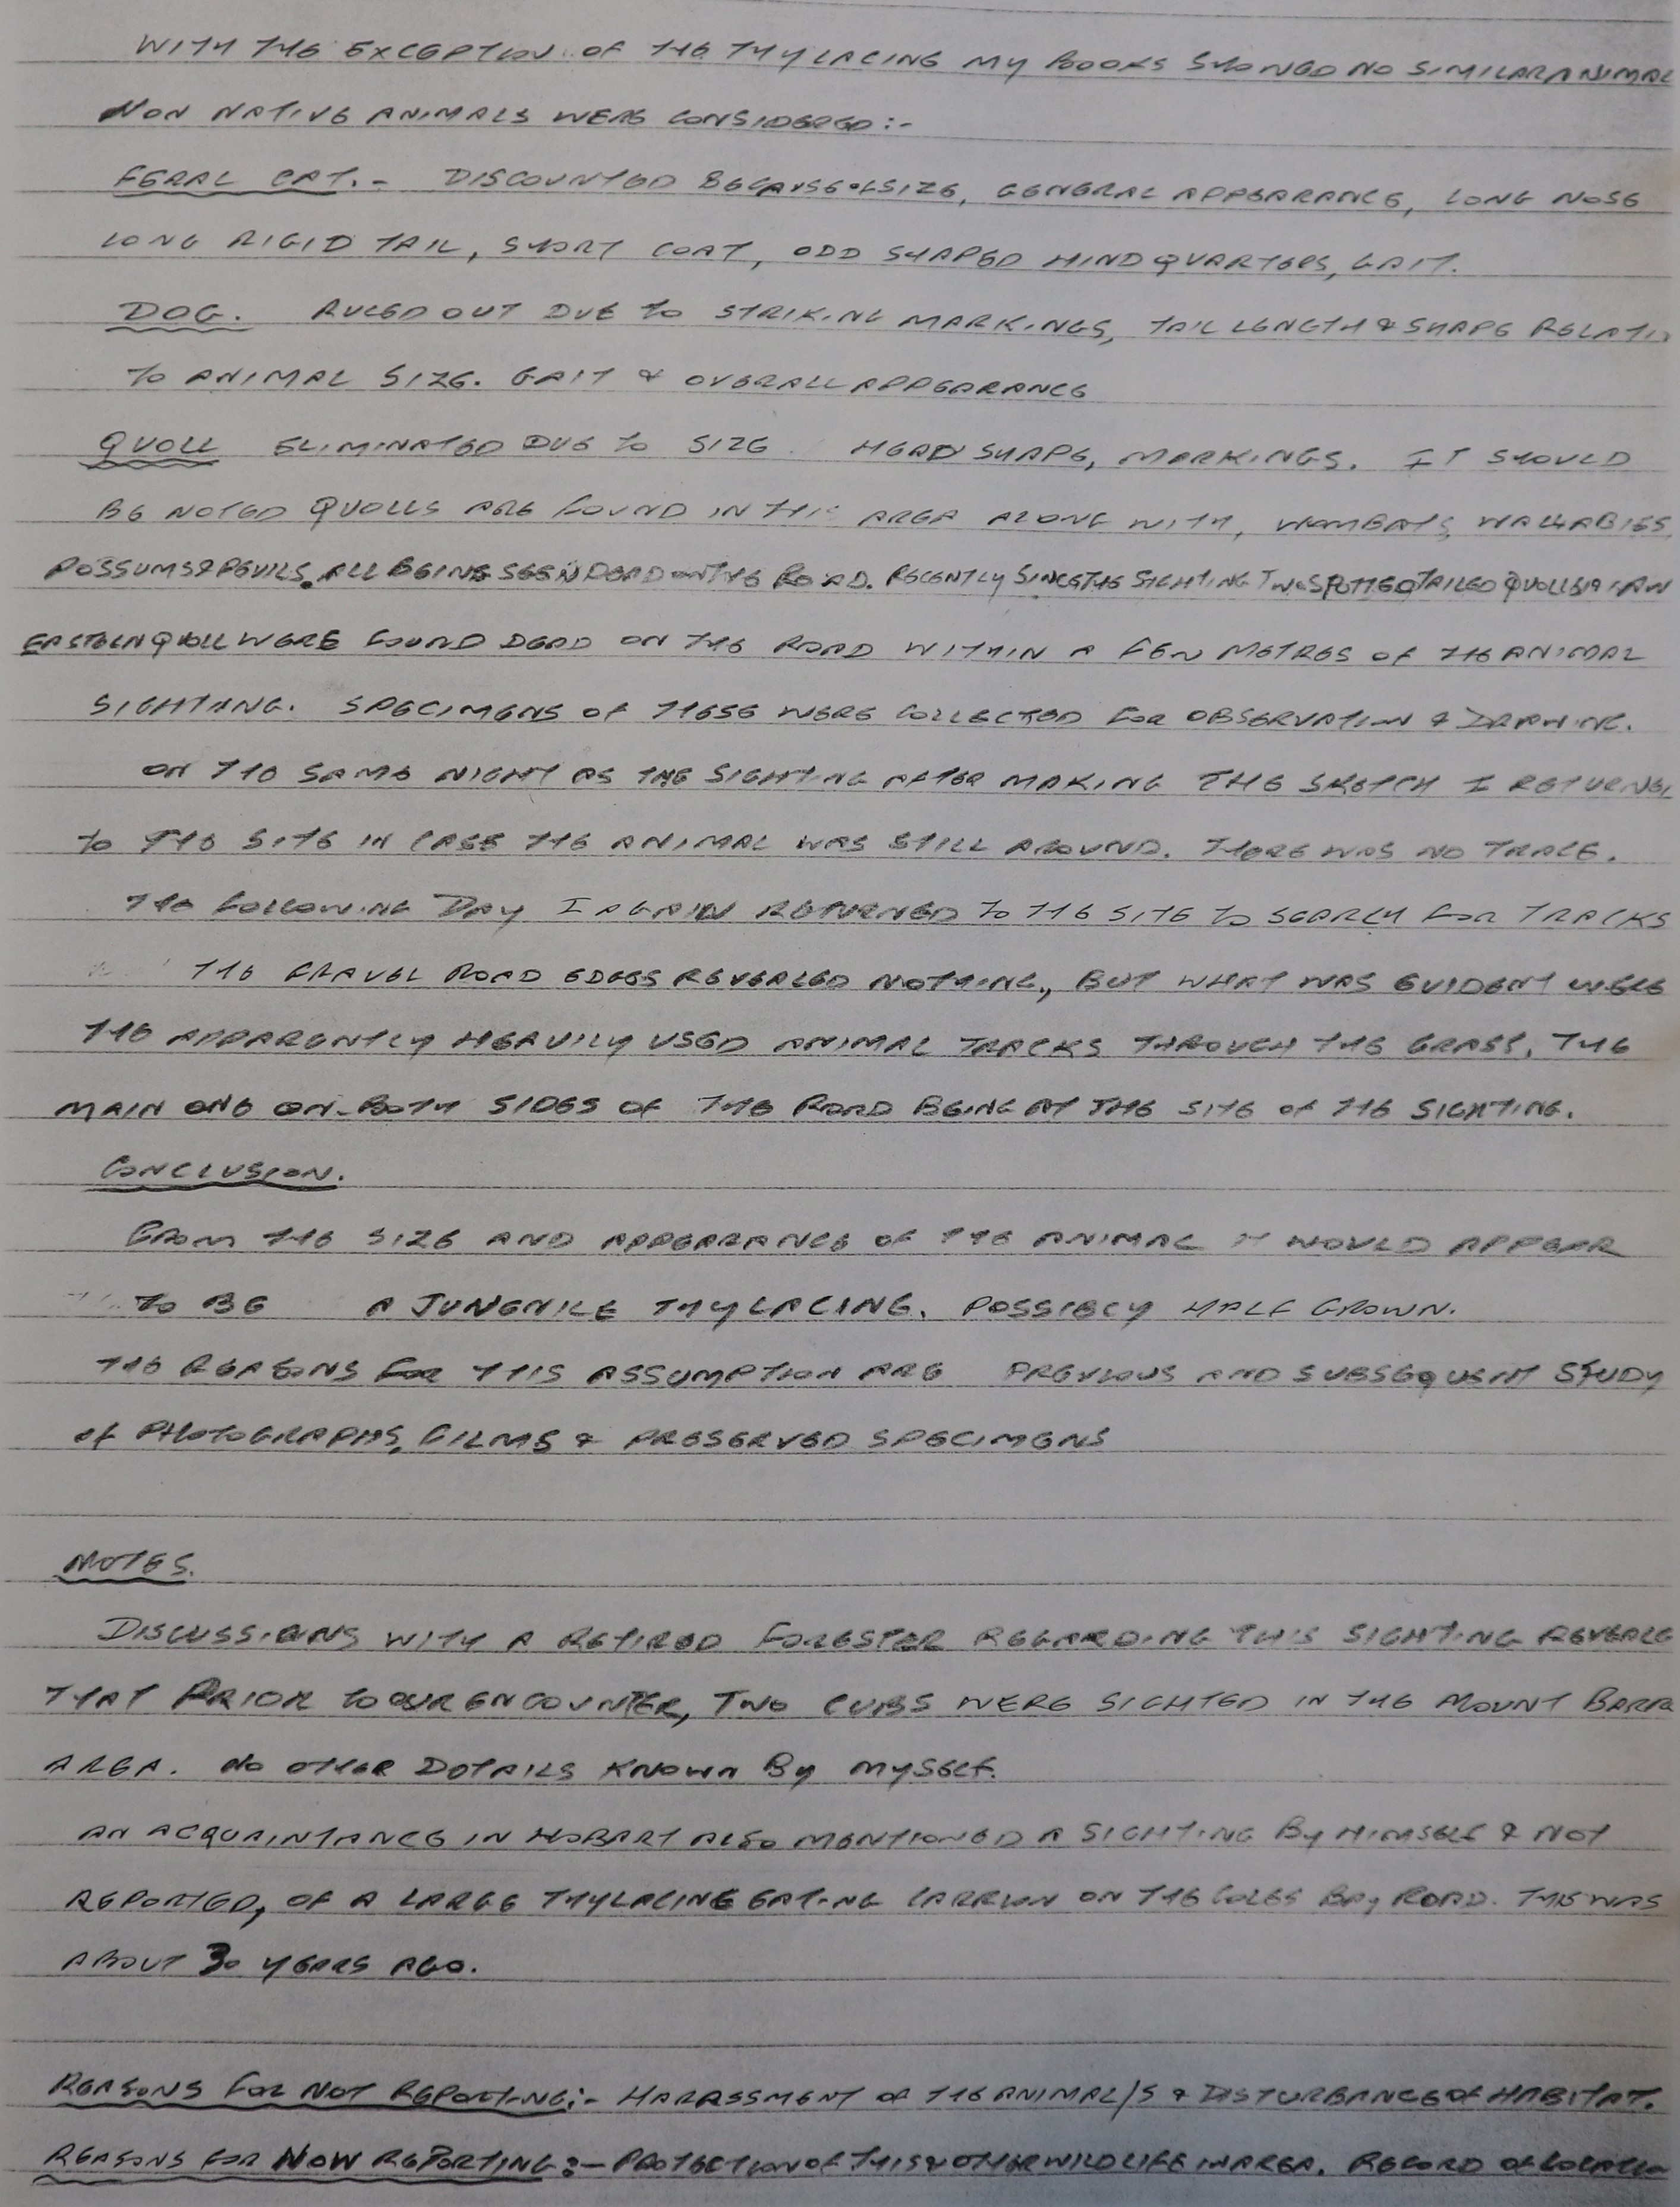 WITH THE EXCEPTION OF THE THYLACINE MY BOOKS SHOWED NO SIMILAR ANIMAL
NON NATIVE ANIMALS WERE CONSIDERED:-
FERAL CAT.- DISCOUNTED BECAUSE OF SIZE, GENERAL APPEARANCE, LONG NOSE
LONG RIGID TAIL, SHORT COAT, ODD SHAPED HIND QUARTERS, GAIT.
DOG. RULED OUT DUE TO STRIKING MARKINGS, TAIL LENGTH & SHAPE RELATI
TO ANIMAL SIZE. GAIT & OVERALL APPEARANCE
QUOLL ELIMINATED DUE TO SIZE HEAD SHAPE, MARKINGS. IT SHOULD
BE NOTED QUOLLS ARE FOUND IN THIS AREA ALONG WITH, WOMBATS, WALLABIES,
POSSUMS & DEVILS. ALL BEING SEEN DEAD ON THE ROAD. RECENTLY SINCE THE SIGHTING TWO SPOTTED TAILED QUOLLS AN
EASTERN QUOLL WERE FOUND DEAD ON THE ROAD WITHIN A FEW METRES OF THE ANIMAL
SIGHTING. SPECIMENS OF THESE WERE COLLECTED FOR OBSERVATION & DRAWING.
ON THE SAME NIGHT AS THE SIGHTING AFTER MAKING THE SKETCH I RETURNED
TO THE SITE IN CASE THE ANIMAL WAS STILL AROUND. THERE WAS NO TRACE.
THE FOLLOWING DAY I AGAIN RETURNED TO THE SITE TO SEARCH FOR TRACKS
THE GRAVEL ROAD EDGES REVEALED NOTHING, BUT WHAT WAS EVIDENT WERE
THE APPARENTLY HEAVILY USED ANIMAL TRACKS THROUGH THE GRASS, THE
MAIN ONE ON BOTH SIDES OF THE ROAD BEING AT THE SITE OF THE SIGHTING.
CONCLUSION.
FROM THE SIZE AND APPEARANCE OF THE ANIMAL IT WOULD APPEAR
TO BE A JUNENILE THYLACINE. POSSIBLY HALF GROWN.
THE REASONS FOR THIS ASSUMPTION ARE PREVIOUS AND SUBSEQUENT STUDY
OF PHOTOGRAPHS, FILMS & PRESERVED SPECIMENS
NOTES.
DISCUSSIONS WITH A RETIRED FORESTER REGARDING THIS SIGHTING REVEALE
THAT PRIOR TO OUR ENCOUNTER, TWO CUBS WERE SIGHTED IN THE MOUNT BARRO
AREA. NO OTHER DETAILS KNOWN BY MYSELF.
AN ACQUAINTANCE IN HOBART ALSO MENTIONED A SIGHTING BY HIMSELF & NOT
REPORTED, OF A LARGE THYLACINE EATING CARRION ON THE COLES BAY ROAD. THIS WAS
ABOUT 30 YEARS AGO.
REASONS FOR NOT REPORTING:- HARASSMENT OF THE ANIMAL/S & DISTURBANCE OF HABITAT.
REASONS FOR NOW REPORTING:- PROTECTION OF THIS & OTHER WILDLIFE IN AREA. RECORD OF LOCATION